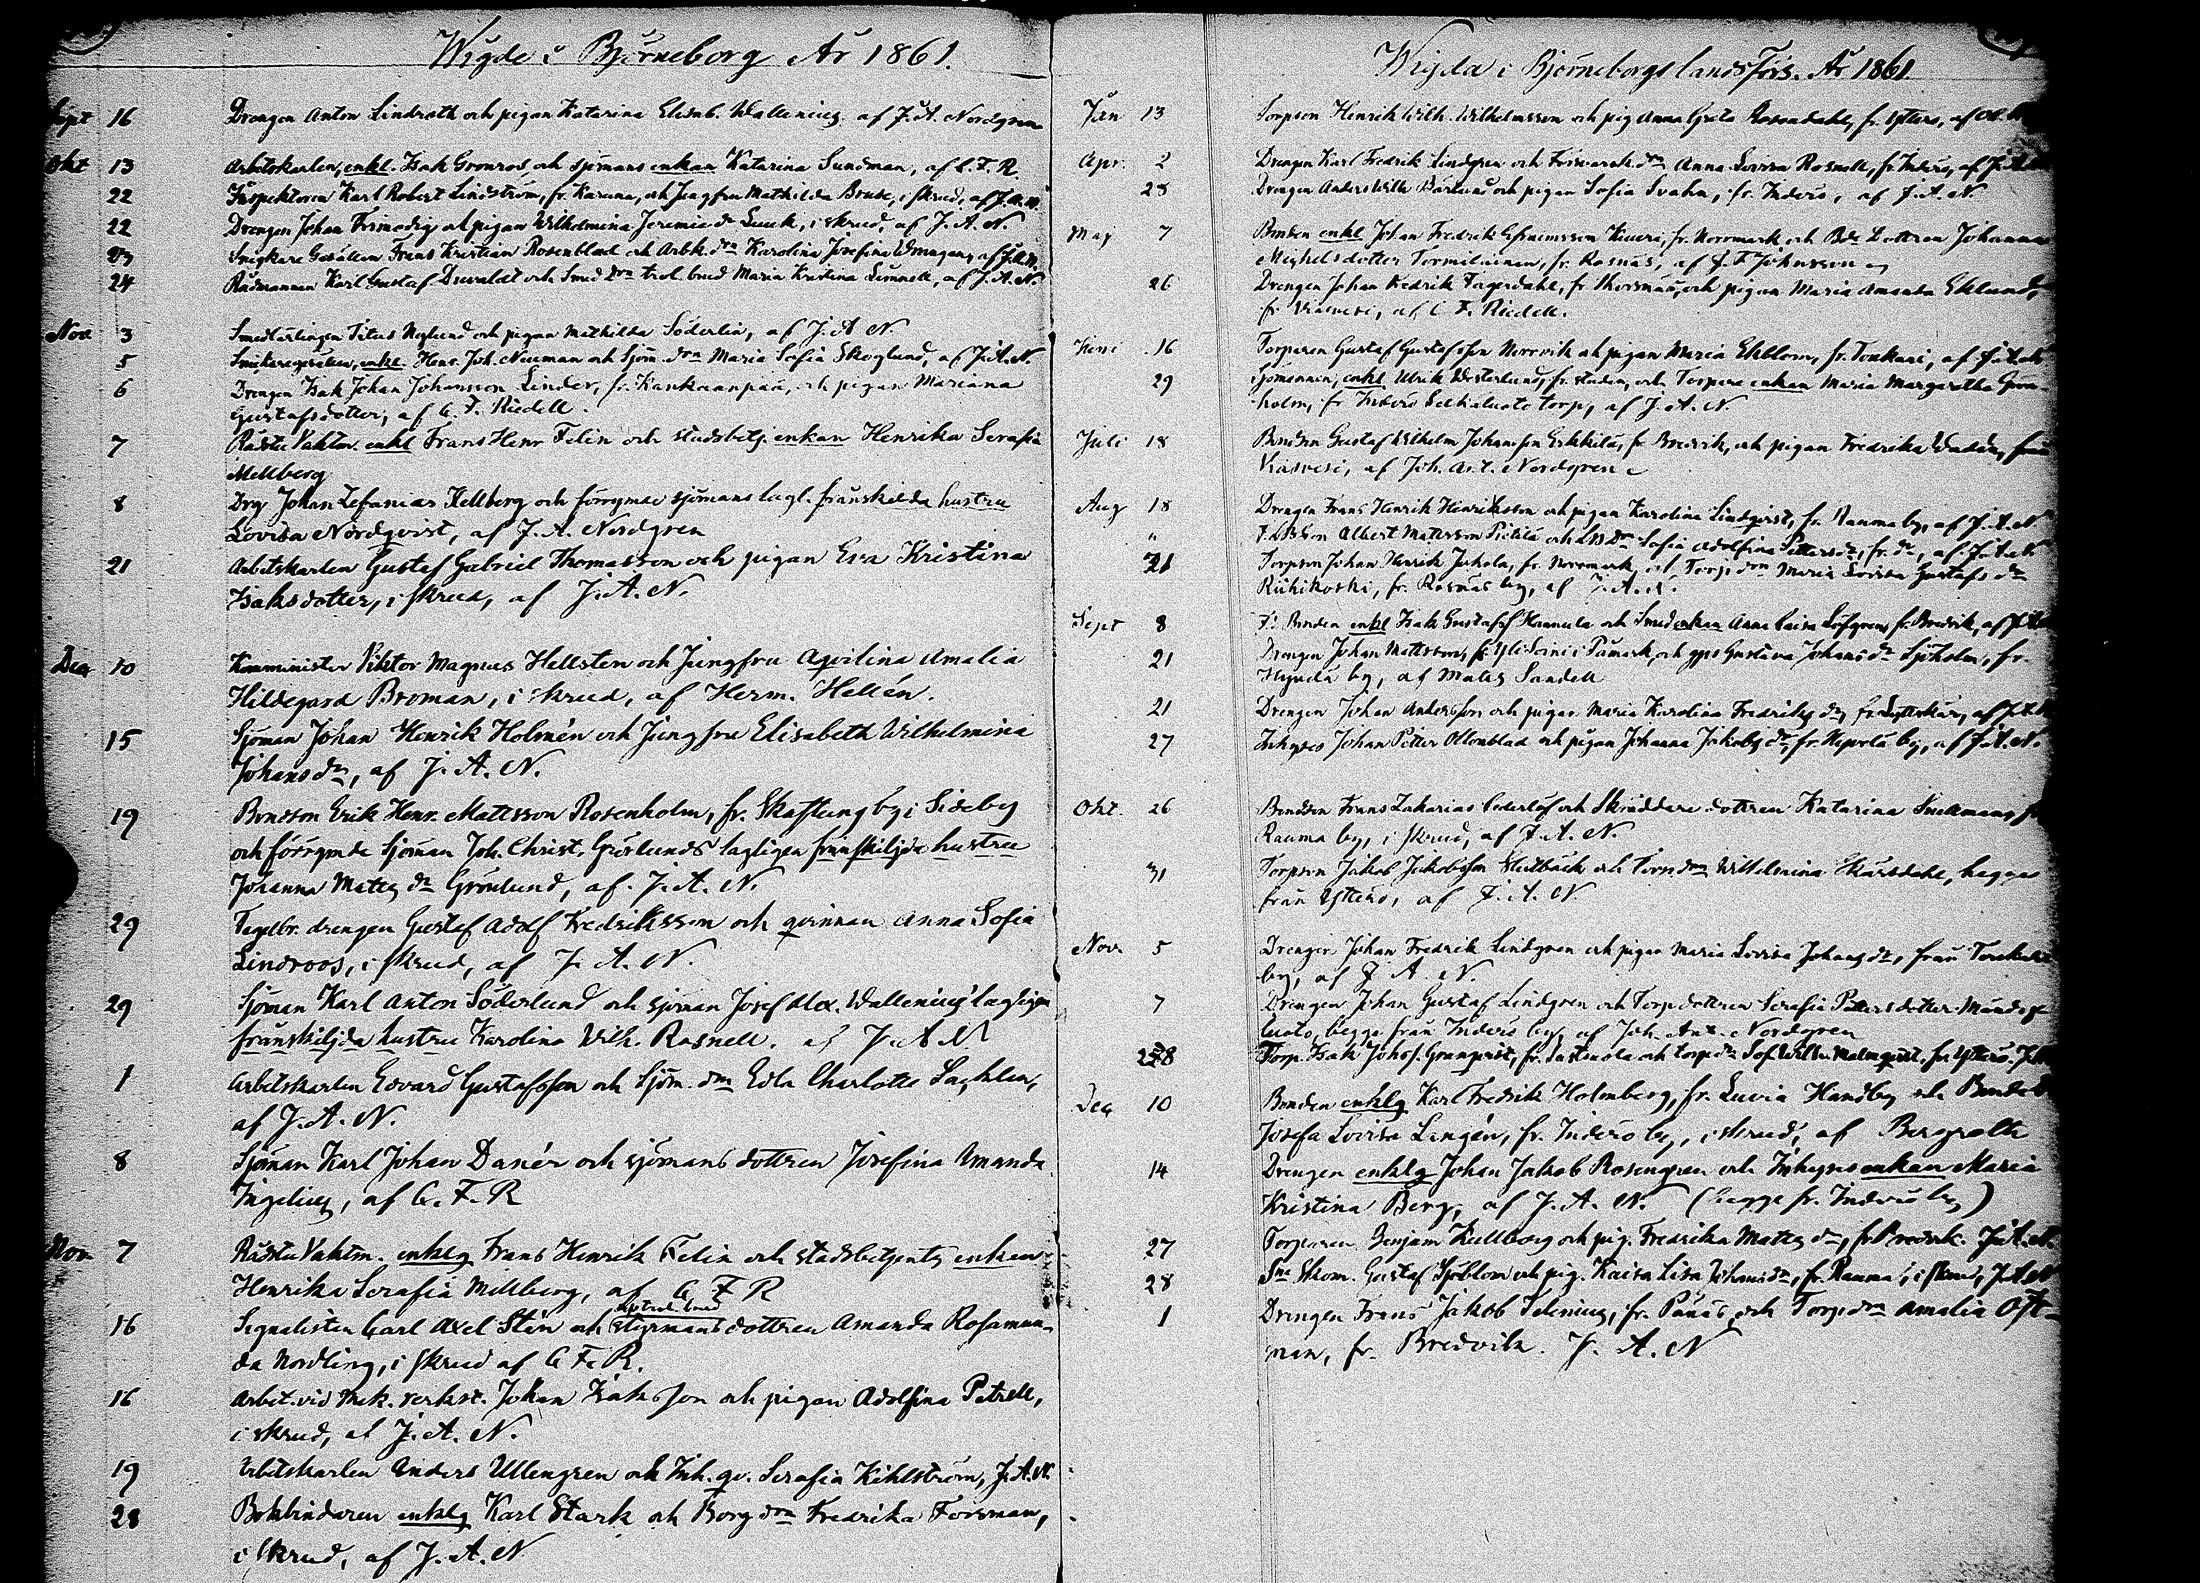 Wigde i Björneborg År 1861.
Sept 16 Drengen Anton Lindroth och pigan Katarina Elisab. Wallenius af J. A. Nordgren
Okt 13 Arbetskarlen, enkl. Isak Grönroos, och sjömans enkan Katarina Sundman, af C. F. R.
22 Inspektoren Karl Robert Lindström, fr. Karuna, och Jungfru Mathilda Bruse, i skrud, af J. A. N.
22 Drengen Johan Frimodig och pigan Wilhelmina Jeremie dr Lunk, i skrud, af J. A. N.
23 Snickare Gesällen Frans Kristian Rosenblad och Arbk. dn Karolina Josefina Wrangen, af J. A. N.
24 Rådmannen Karl Gustaf Duvaldt och Smed Dn trol. brud Maria Kristina Limnell, af J. A. N.
Nov 3 Smedlärlingen Titus Neglund och pigan Mathilda Söderlin, af J. A. N.
5 enkl. Henr. Joh. Neuman och Sjöm. dn Maria Sofia Skoglund, af J. A. N.
6 Drengen Isak Johan Johansson Linder, fr. Kankaanpää, och pigan Mariana
Gustafsdotter, af C. F. Riedell.
7 Rådstu Vaktm. enkl Frans Henr Felin och stadsbetj. enkan Henrika Serafia
Mellberg
8 Drg Johan Zefanias Kellberg och förrymde sjömans lagl. frånskilda hustru
Lovisa Nordqvist, af J. A. Nordgren
21 Arbetskarlen Gustaf Gabriel Thomasson och pigan Eva Kristina
Isaksdotter, i skrud, af J. A. N.
Dec 10 Komminister Viktor Magnus Hellsten och Jungfru Aqvilina Amalia
Hildegard Broman, i skrud, af Herm. Hellén.
15 Sjöman Johan Henrik Holmén och Jungfru Elisabeth Wilhelmina
Johans dr, af J. A. N.
19 Bondson Erik Henr. Mattsson Rosenholm, fr. Skaftung by i Sideby
och förrymde Sjöman Joh. Christ. Grönlunds lagligen frånskiljda hustru
Johanna Mats dr Grönlund, af J. A. N.
29 Tegelbr. drengen Gustaf Adolf Fredriksson och qvinnan Anna Sofia
Lindroos, i skrud, af J. A. N.
29 Sjöman Karl Anton Söderlund och sjöman Josef Alex. Wallenius' lagligen
frånskiljda hustru Karolina Wilh. Rosnell. af J. A. N
1 Arbetskarlen Edvard Gustafsson och Sjöm. dn Edla Charlotte Sahlen,
af J. A. N.
8 Sjöman Karl Johan Danér och sjömans dottren Josefina Amanda
Ingelius, af C. F. R
Nov 7 Rådstu Vaktm. enklg Frans Henrik Felin och stadsbetjents enkan
Henrika Serafia Mellberg, af C F R
16 Signalisten Carl Axel Stén och styrmans dottren Amanda Rosamun-
da Nordling, i skrud af C. F. R.
16 Arbet. vid Mek. verkst. Johan Isaksson och pigan Adolfina Petrell,
i skrud, af J. A. N.
19 Arbetskarlen Anders Ullengren och Inh. qv. Serafia Kihlström, J. A. N.
28 Bokbindaren enklg Karl Stark och Borg dn Fredrika Forsman,
i skrud, af J. A. N
Wigda i Björneborgs landsförs. År 1861.
Jan 13 Torpson Henrik Wilh. Wilhelmsson och pig Anna Greta Rosendahl, fr. Ytterö, af
Apr. 2 Drengen Karl Fredrik Lindgren och dn Anna Lovisa Rosnell, fr. Inderö, af J. A. N
28 Drengen Anders Wilh och pigan Sofia Svahn, fr. Inderö, af J. A. N.
Maj 7 Bonden enkl Johan Fredrik Efraimsson Kiveri, fr. Norrmark och Bde Dottren Johanna
Mickelsdotter Tormilainen, fr. Rosnäs, af J. F. Johnsson
26 Drengen Johan Fredrik Fagerdahl, fr. Korsnäs, och pigan Maria Amanda Eklund,
fr. Viasvesi, af C F. Riedell.
Juni 16 Torparen Gustaf Gustafsson Norrvik och pigan Maria Ekblom, fr. Toukari, af J. A. N
29 Sjömannen, enkl Ulrik Westerlund, fr. staden, och Torpare enkan Maria Margaretha Grön-
holm, fr Inderö torp, af J. A. N.
Juli 18 Bondson Gustaf Wilhelm Johansson Erkkilä, fr. Bredvik, och pigan Fredrika från
Viasvesi, af Joh. Ant. Nordgren
Aug 18 Drengen Frans Henrik Henriksson och pigan Karolina Lindqvist, fr. Rauma by, af J. A. N
" Albert Matsson och Dn Sofia Adolfina Petters dr, fr. do, af J. A. N.
21 Torpson Johan Henrik Jokela, fr. Norrmark, och Torp. dn Maria Lovisa Gustafs dr
Riihikoski, fr. Rosnäs by, af J. A. N.
Sept 8 Bonden enkl Isak Gustafs Hannula och Smed enkan Anna Caisa Löfgren, fr. Bredvik, af J. A.
21 Drengen Johan Mattsson, fr. i Påmark, och Gustava Johans dr Sjöholm, fr.
by, af Mats Sandell
21 Drengen Johan Andersson och pigan Maria Karolina Fredriks dr, fr. Lyttskär, af J. A. N
27 Inhyses Johan Petter Ollonblad och pigan Johanna Jakobs dr, fr. by, af J. A. N.
Okt. 26 Bondson Frans Zakarias Cederlöf och Skräddare dottren Katarina Snellman,
Rauma by, i skrud, af J. A. N.
31 Torpson Jakob Jakobsson och Torp dn Wilhelmina begge
från Ytterö, af J. A. N.
Nov 5 Drengen Johan Fredrik Lindgren och pigan Maria Lovisa Johans dr, från
by, af J. A. N.
7 Drengen Johan Gustaf Lindgren och Torpdottren Serafia Pettersdotter
luoto, begge från Inderö by, af Joh. Ant. Nordgren
28 Torp. Isak Johss. Granqvist, fr. och torp dn Sof. Wilh. Malmqvist, fr. Ytterö. J. A.
Dec 10 Bonden enklg Karl Fredrik Holmberg, fr. Luvia Hanby och Bonde
Josefa Lovisa Lengén, fr. Inderö by, i skrud, af Bergroth
14 Drengen enklg Johan Jakob Rosengren och Inhyses enkan Maria
Kristina Berg, af J. A. N. (begge fr. Inderö by)
27 Torparen Benjam Kullberg och pig. Fredrika Mats dr, fr. Bredvik. J. A. N.
28 Gustaf Sjöblom och pig. Kaisa Lisa Johans dr, fr. Rauma, i skrud, J. A. N
1 Drengen Frans Jakob Selenius, fr. Pånäs, och Torp dn Amalia Öst-
man, fr. Bredvik. J. A. N